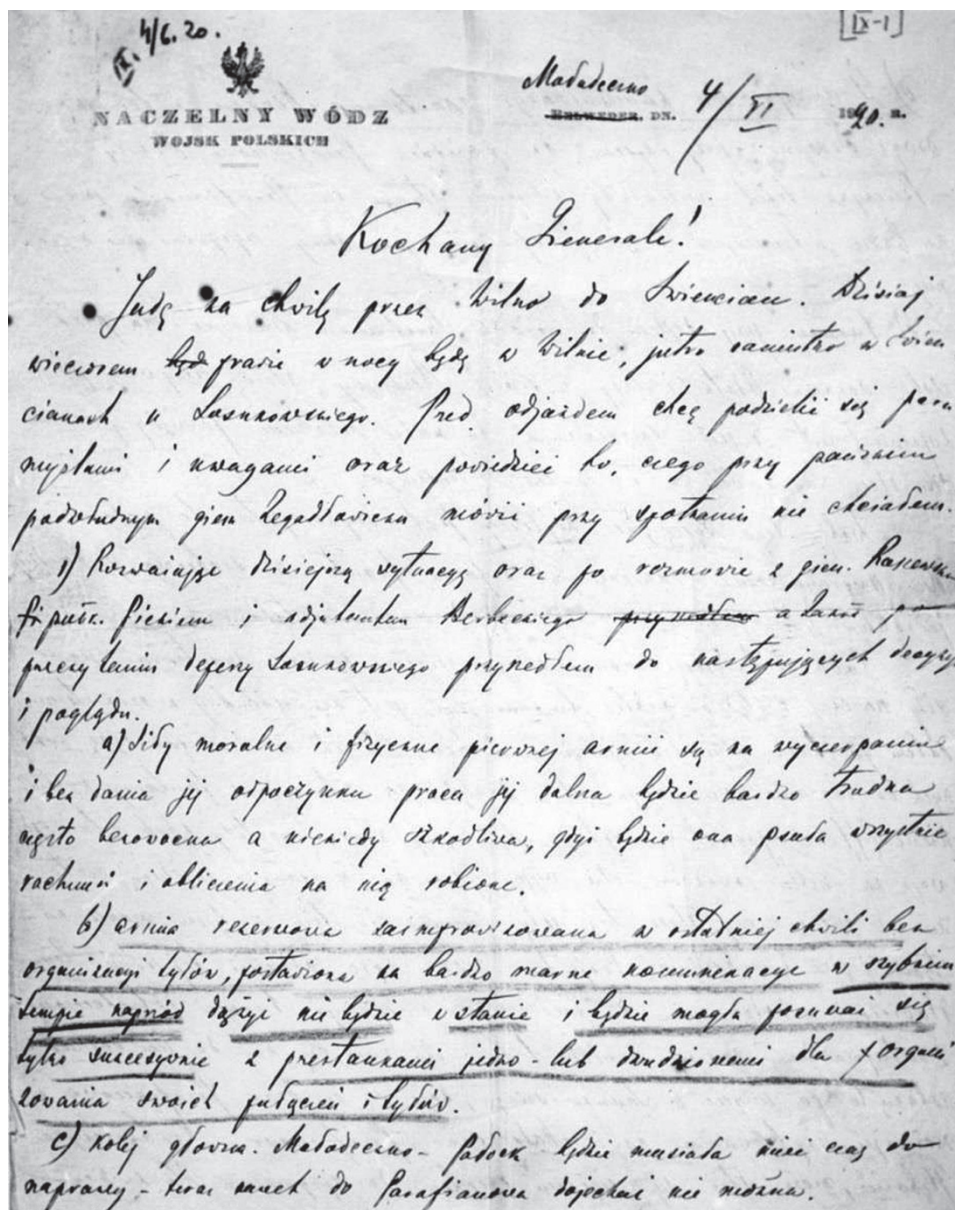 [IX-1]
4/6. 20.
NACZELNY WÓDZ
WOJSK POLSKICH
Mołodeczno
BELWEDER, DN. 4/VI 1920. R.
Kochany Gienerale!
Jadę na chwilę przez Wilno do Święcian. Dzisiaj
wieczorem prawie w nocy będę w Wilnie, jutro raniutko w Świen
cianach u Sosnkowskiego. Przed odjazdem chcę podzielić się paru
myślami i uwagami oraz powiedzieć to, czego przy pańskim
podwładnym gienr. Zegadłowiczu mówić przy spotkaniu nie chciałem.
1) Rozważając dzisiejszą sytuację oraz po rozmowie z gien. Raszewskim
pułk. Piskiem i adjutantem Berbeckiego przyszedłem a także po
przeczytaniu depeszy Sosnkowskiego przyszedłem do następujących decyzyj
i poglądu.
a) Siły moralne i fizyczne pierwszej armii są na wyczerpaniu
i bez dania jej odpoczynku praca jej dalsza będzie bardzo trudna
często bezowocna a niekiedy szkodliwa, gdyż będzie ona psuła wszystkie
rachunki i obliczenia na nią robione.
b) armia rezerwowa zaimprowizowana w ostatniej chwili bez
organizacyi tyłów, postawiona na bardzo marne komunikacye w szybkiem
tempie naprzód dążyć nie będzie w stanie i będzie mogła posuwać się
tylko sukcesywnie z przestankami jedno- lub dwudniowemi dla organi
zowania swoich połączeń i tyłów.
c) Kolej główna. Mołodeczno - Połock będzie musiała mieć czas do
naprawy - teraz nawet do Parafianowa dojechać nie można.